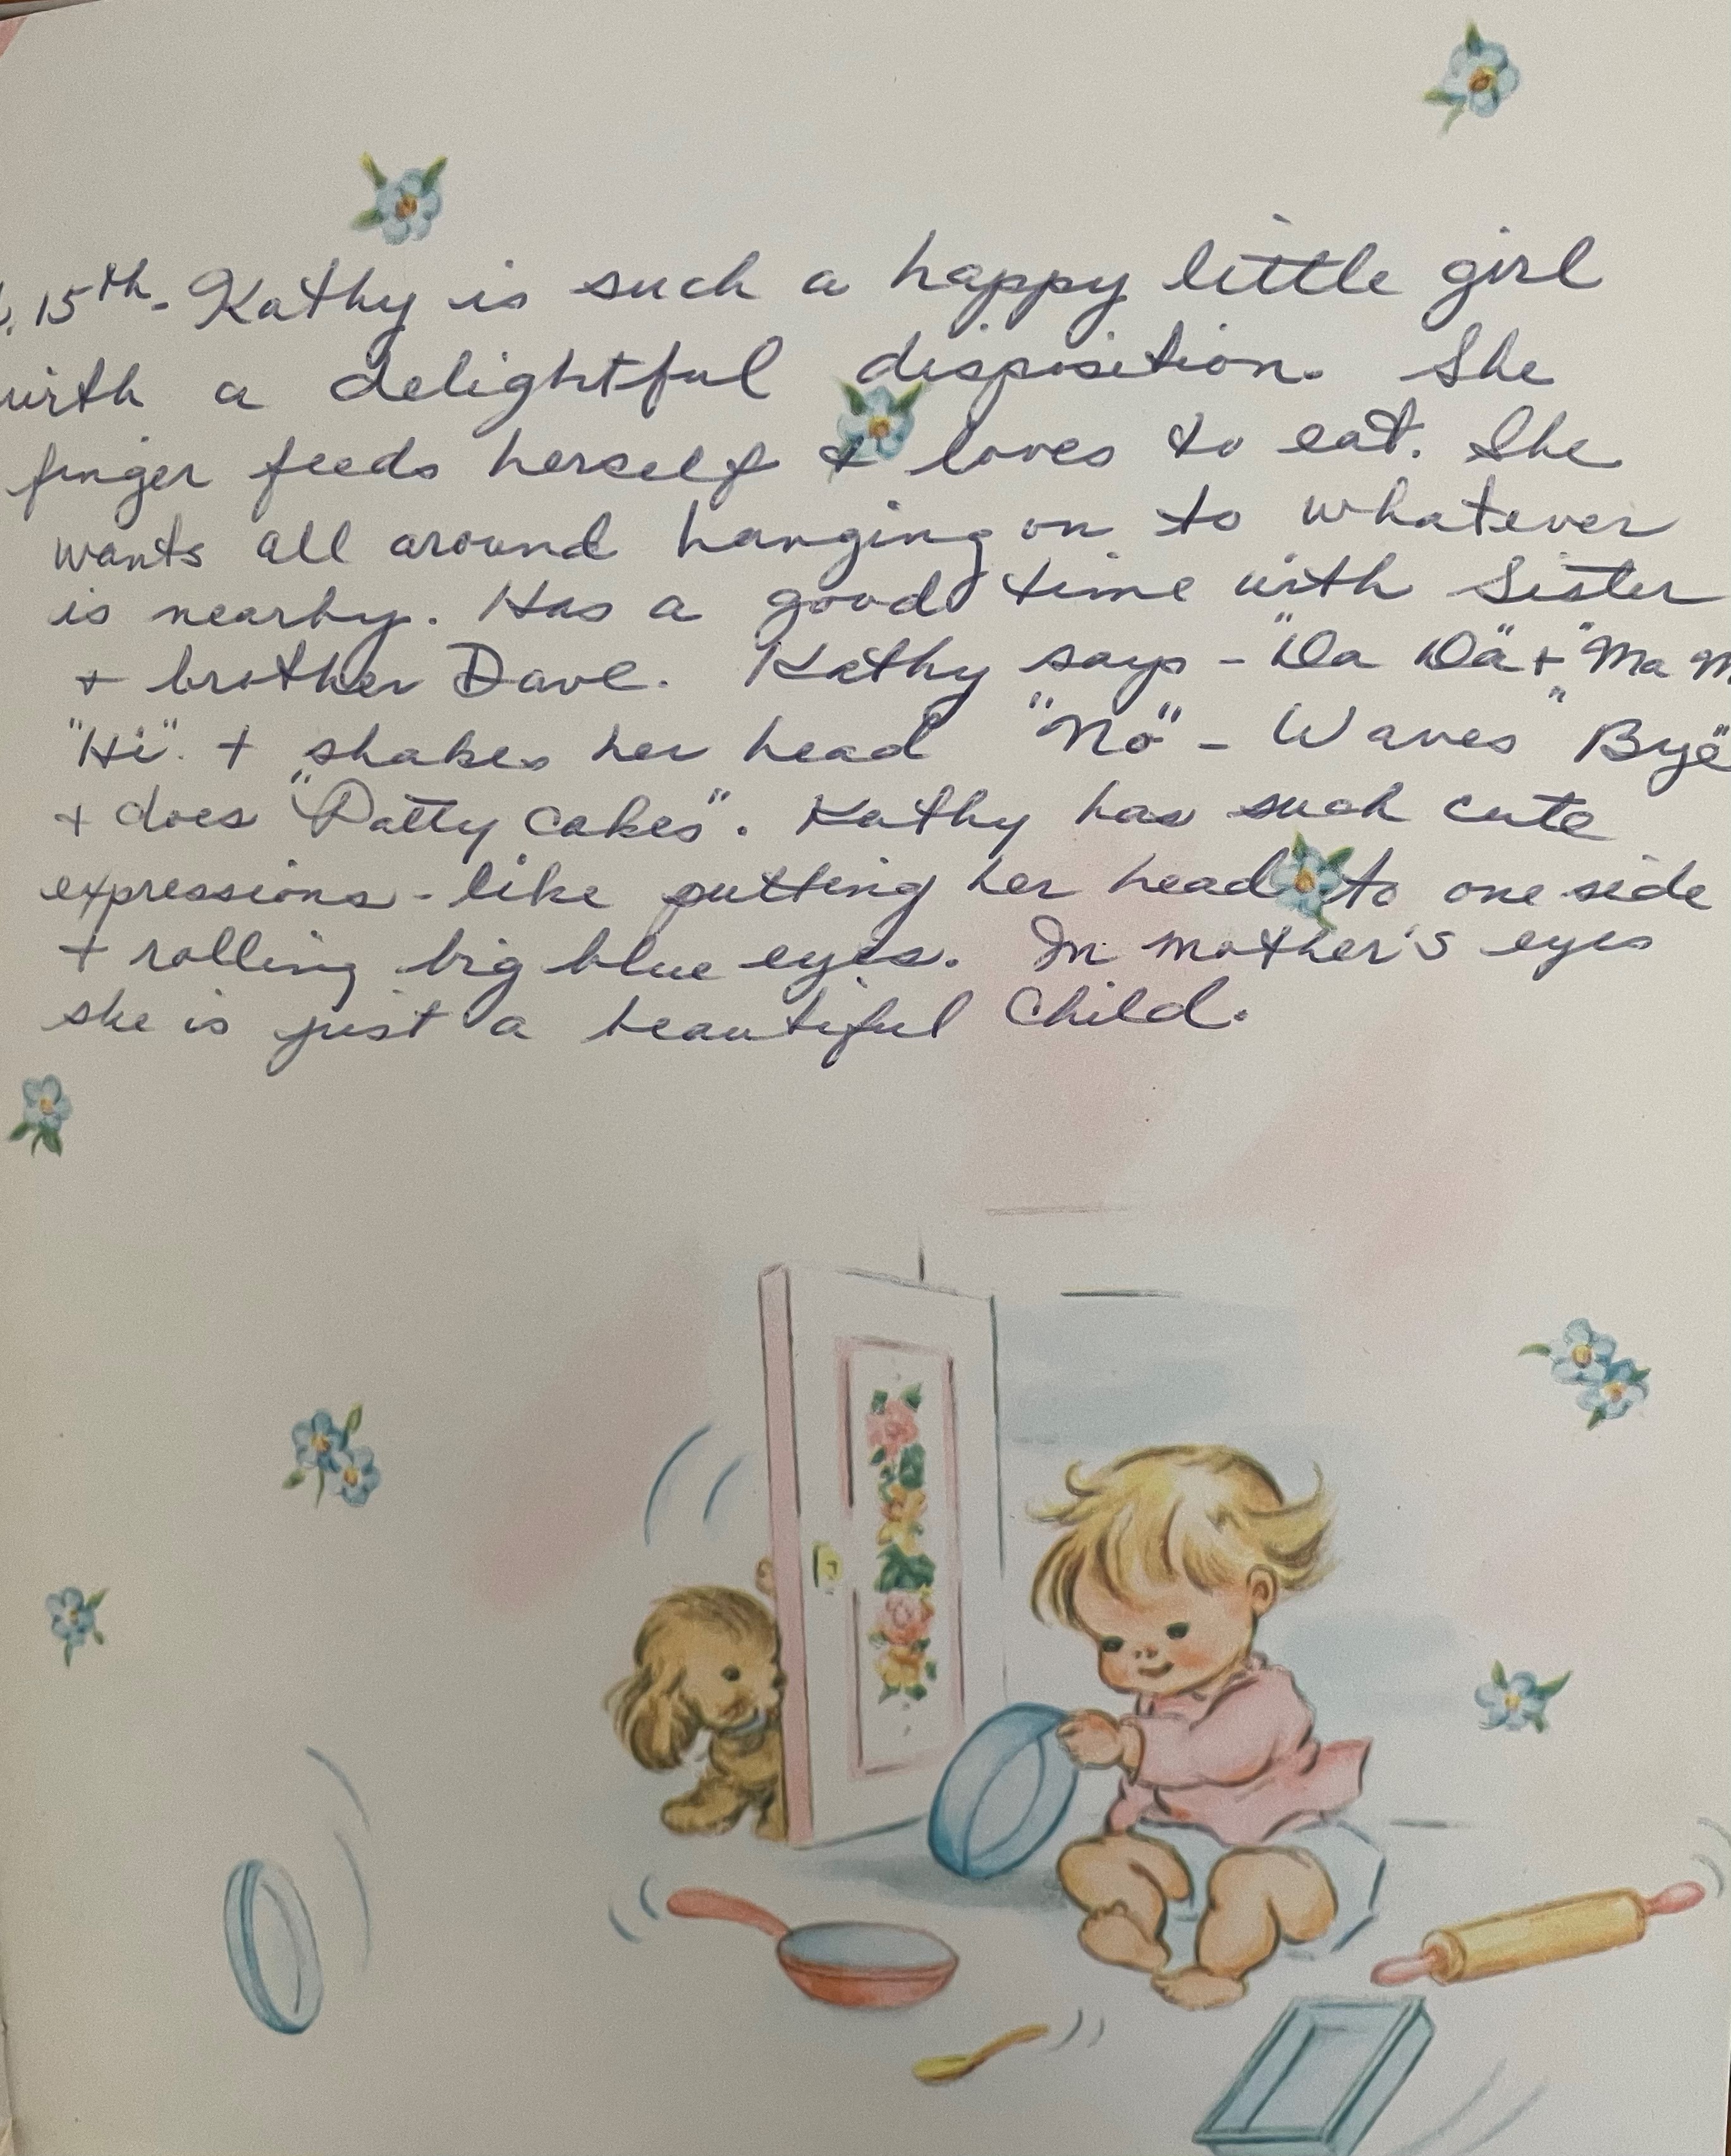 15th. Kathy is such a happy little girl
with a delightful disposition. She
finger feeds herself & loves to eat. She
wants all around hanging on to whatever
is nearby. Has a good time with Sister
+ brother Dave. Kathy says - "Da Da" + "Ma M
"Hi". + shakes her head "No" - Waves "Bye"
+ does "Patty Cakes". Kathy has such cute
expressions - like putting her head to one side
+ rolling big blue eyes. In mother's eyes
she is just a beautiful Child.